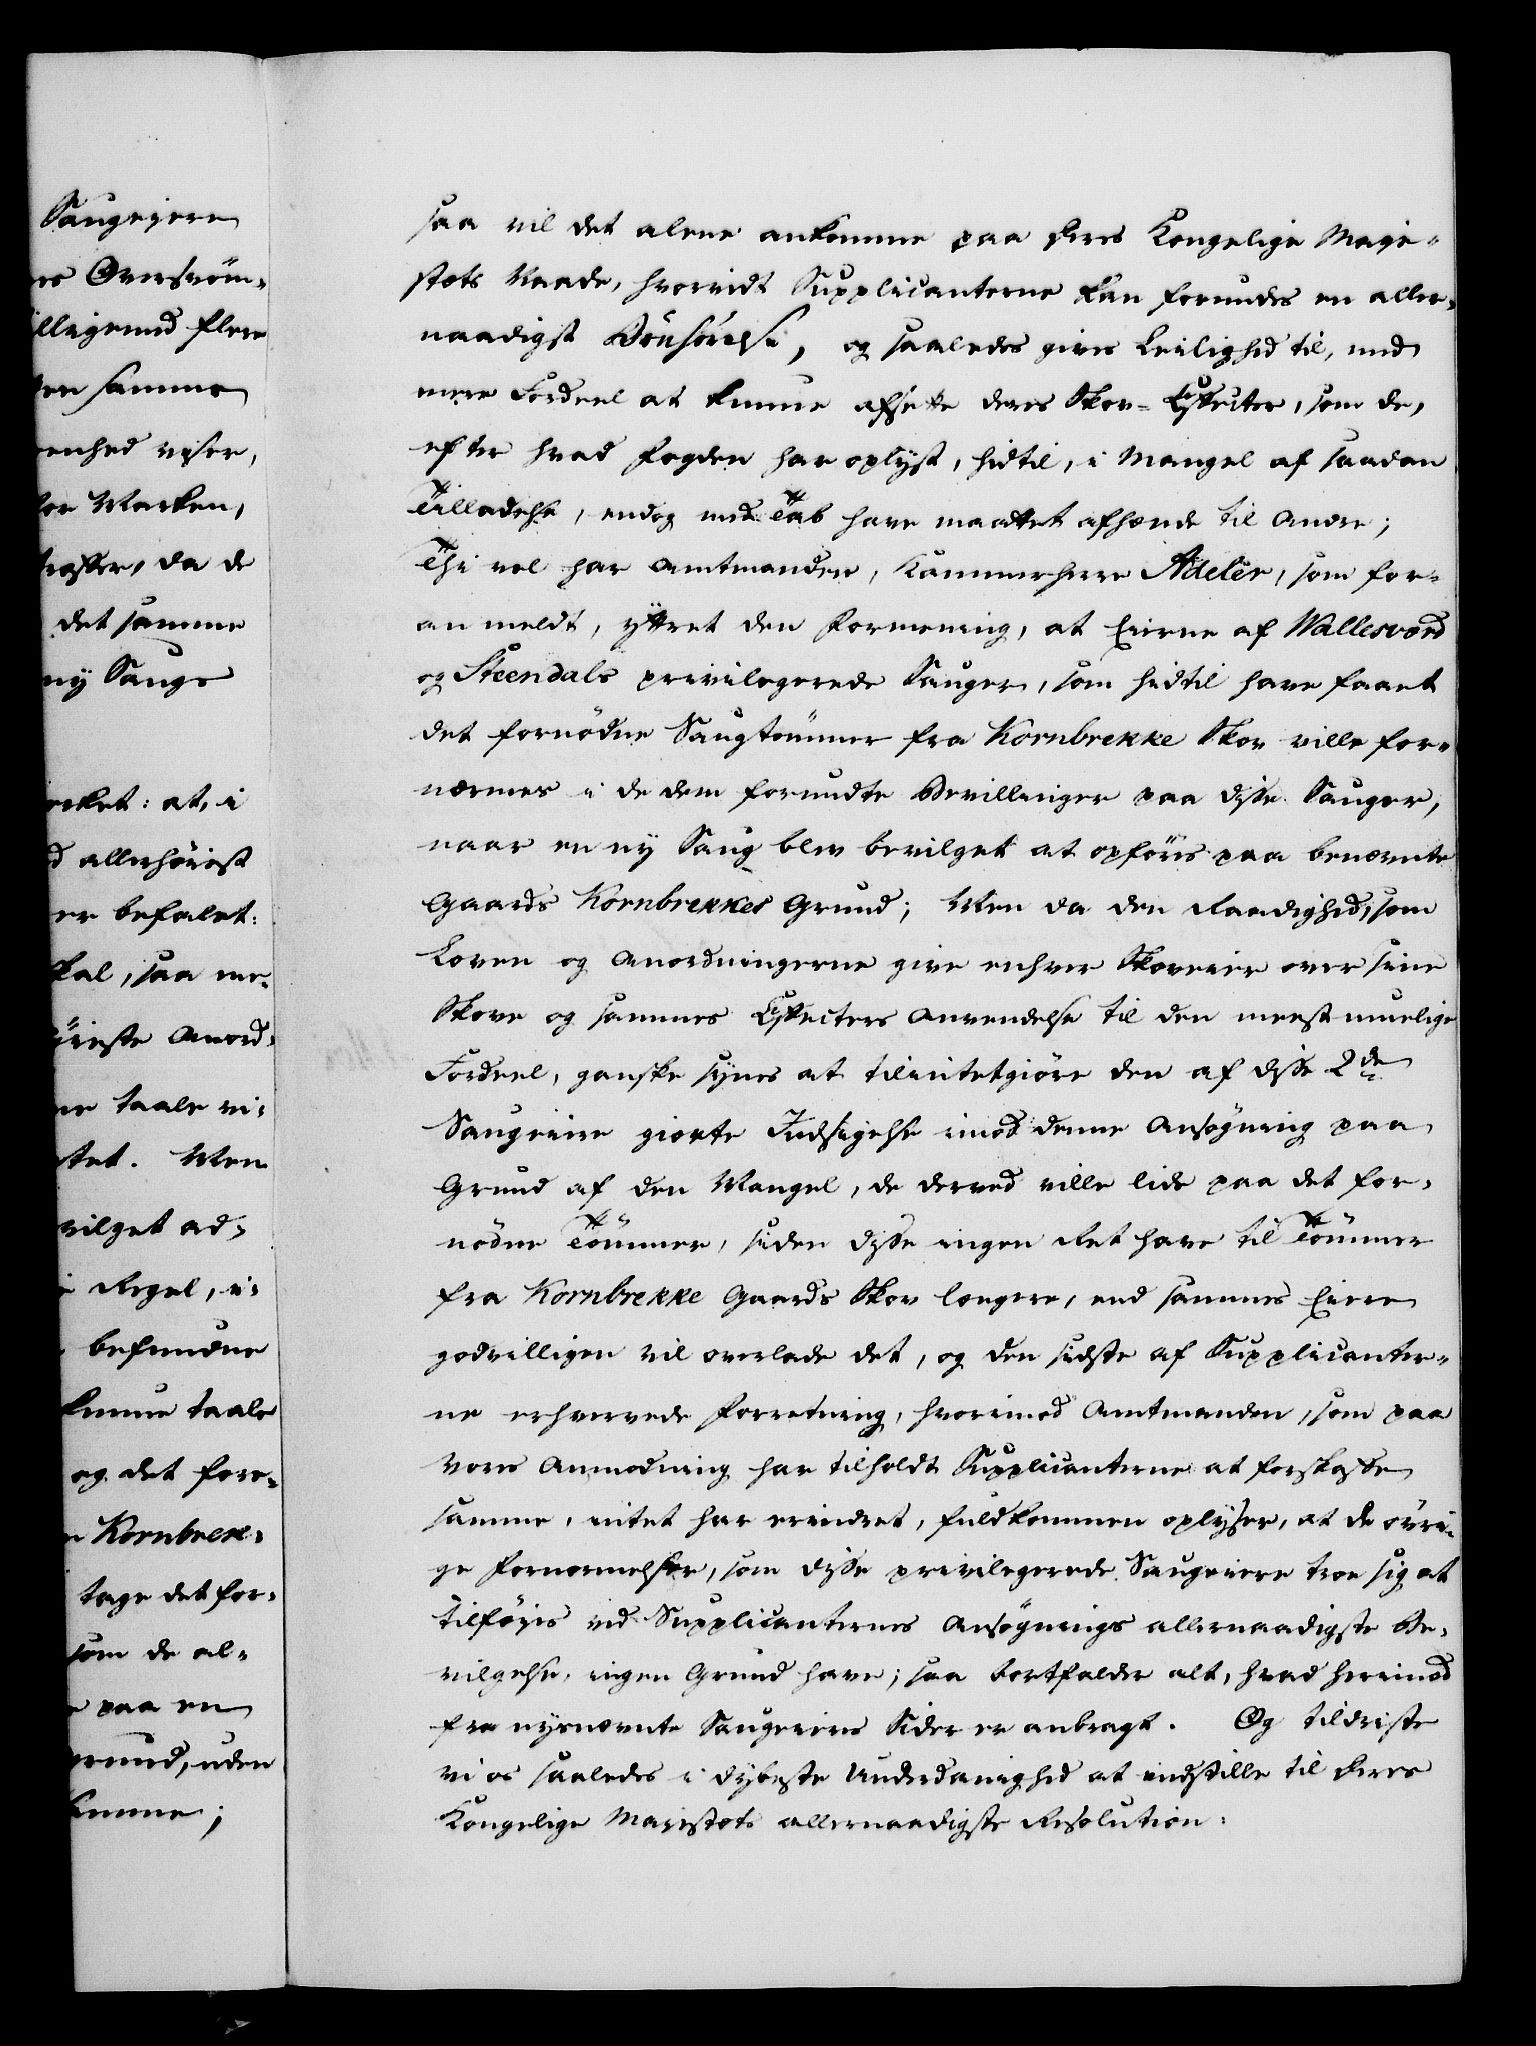 Saugeyere
Oversvöm-
illigemed flere
samme
enhed viser,
Marken,
da de
det samme
ny Saugs
at, i
allerhöiest
er befalet:
skal, saa me-
öieste Anord-
taale vi-
Men
vilget ad-
Regel, vi-
befundne
kunne taale
og det fore-
Kornbrek-
tage det for-
som de al-
paa en
grund, uden
komme;
saa vil det alene ankomme paa Deres Kongelige Maje-
stæts Naade, hvorvidt Supplicanterne kan forundes en aller-
naadigst Bönhörelse, og saaledes gives Leilighed til, med
mere Fordeel at kunne afsette deres Skov-Effecter, som de,
efter hvad Fogden har oplyst, hidtil, i Mangel af saadan
Tilladelse, endog med Tab have maattet afhænde til Andre;
Thi vel har Amtmanden, Kammerherre Adeler, som for-
an meldt, yttret den Formening, at Eierne af Wallesværd
og Steendals privilegerede Sauger, som hidtil have faaet
det fornödne Saugtömmer fra Kornbrekke Skov ville for-
nærmes i de dem forundte Bevillinger paa disse Sauger,
naar en ny Saug blev bevilget at opföres paa benævnte
Gaards Kornbrekkes Grund; Men da den Raadighed, som
Loven og Anordningerne give enhver Skoveier over sine
Skove og sammes Effecters Anvendelse til den meest muelige
Fordeel, ganske synes at tilintetgiöre den af disse 2de
Saugeiere giorte Indsigelse imod denne Ansögning paa
Grund af den Mangel, de derved ville lide paa det for-
nödne Tömmer, siden disse ingen Ret have til Tömmer
fra Kornbrekke Gaards Skov længere, end sammes Eiere
godvilligen vil overlade det, og den sidste af Supplicanter-
ne erhvervede Forretning, hvorimod Amtmanden, som paa
vores Anmodning har tilholdt Supplicanterne at forskaffe
samme, intet har erindret, fuldkommen oplyser, at de övri-
ge Fornærmelser, som disse privilegerede Saugeiere troe sig at
tilföjes ved Supplicanternes Ansögnings allernaadigste Be-
vilgelse, ingen Grund have; saa bortfalder alt, hvad herimod
fra nysnævnte Saugeieres Sider er anbragt. Og tildriste
vi os saaledes i dybeste Underdanighed at indstille til Deres
Kongelige Majestæts allernaadigste Resolution: